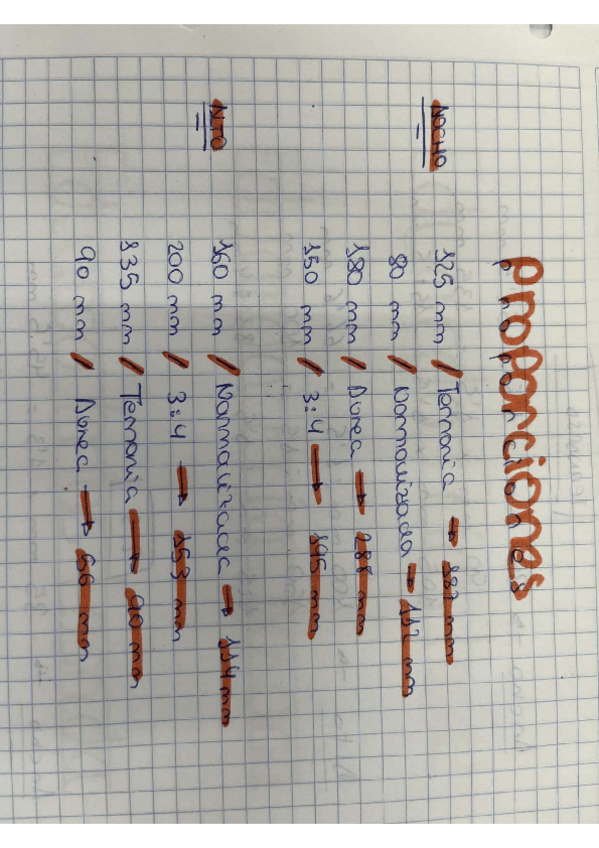 proporciones
ANCHO
125 mm / Ternaria → 187 mm
80 mm / Normalizada → 112 mm
180 mm / Aurea → 288 mm
150 mm / 3:4 → 195 mm
ALTO
160 mm / Normalizada → 114 mm
200 mm / 3:4 → 153 mm
135 mm / Ternaria → 90 mm
90 mm / Aurea → 56 mm